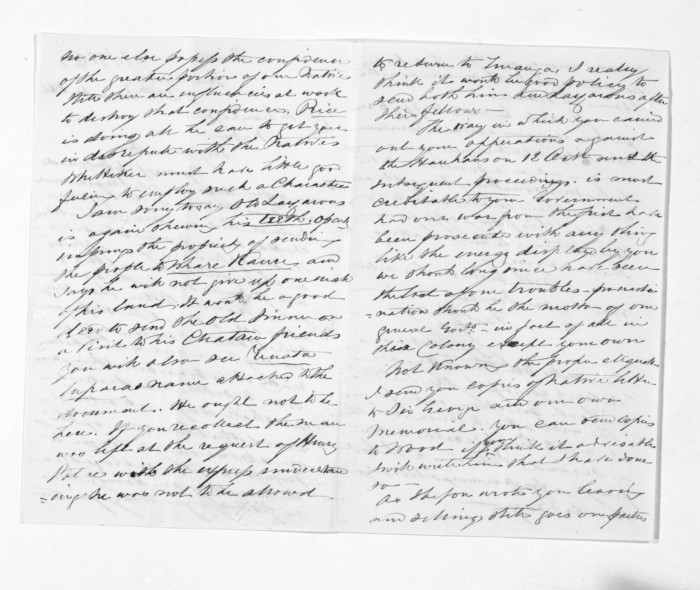 no one else possess the confidence
of the greater portion of our Native
there are influences at work
to destroy that confidence. Rice
is doing all he can to get you
in disrepute with the Natives
Whittaker must have little good
feeling to employ such a Character
I am sorry to say Old Lazarous
is again shewing his teeth, openly
impugns the propriety of sending
the people to Whare Kauri and
says he will not give up one inch
of his land. It wont be a good
to send the Old Sinner on
a visit to his Chatam friends
you will also see
name attached to the
document. He ought not to be
here. If you recollect the man
was left at the request of Henry
with the express understand
=ing he was not to be allowed
to return to I really
think it would be good policy to
send both him and Lazarous after
their fellows—
The way in which you carried
out your operations against
the Hauhaus on 12 Octr and the
subsequent proceedings is most
creditable to your Government
had our war from the first
been prosecuted with any thing
like the energy displayed by you
we should long since have seen
the last of our troubles—procrasti
=nation should be the motto of our
general Govt— in fact of all in
this Colony except your own
Not Knowing the proper etiquette
I send you copies of Native letter
to Sir George and our own
Memorial. You can send copies
to Wood if you think it advisable
with him that I have done
so—
As the wrote you
and goes on